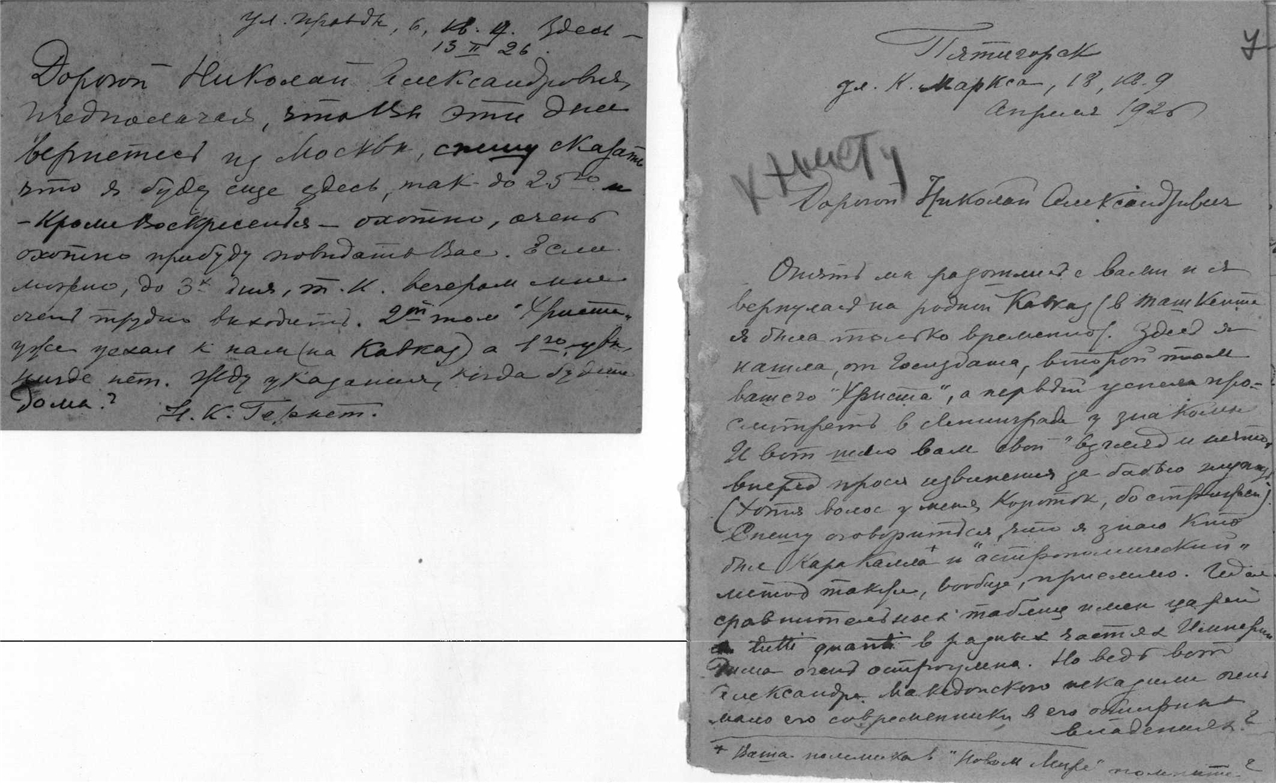 ул. Правды, 6, кв. 4. Здесь –
13 II 26.
Дорогой Николай Александрович,
предполагая, что Вы эти дни
вернетесь из Москвы, спешу сказать
что я буду еще здесь, так до 25го и
– кроме Воскресенья – охотно, очень
охотно прибуду повидать Вас. Если
можно, до 3х дня, т.к. вечерам мне
очень трудно выходить. 2ой том "Христа"
уже уехал к нам (на Кавказ) а 1го, увы,
нигде нет. Жду указания, когда будете
дома?
Н. К. Гернет.
Пятигорск
ул. К. Маркса, 18, кв. 9
Апреля 1926
Христу
Дорогой Николай Александрович
Опять мы разошлись с вами и я
вернулась на родной Кавказ (в Ташкенте
я была только временно). Здесь я
нашла, от Госиздата, второй том
вашего "Христа", а первый успела про-
смотреть в Ленинграде у знакомых
И вот шлю вам свой "взгляд и нечто"
вперед прося извинения за бабью
(хотя волос у меня короток, бо стриженый).
Спешу оговориться, что я знаю кто
был Каракалла* и "астрономический"
метод также, вообще, приемлю. Идея
сравнительных таблиц имен царей
и tutti quanti в разных частях Империи
очень остроумна. Но ведь вот
Александра Македонского исказили очень
мало его современники в его обширных
владениях?
* Ваша полемика в "Новом Мире" помните?